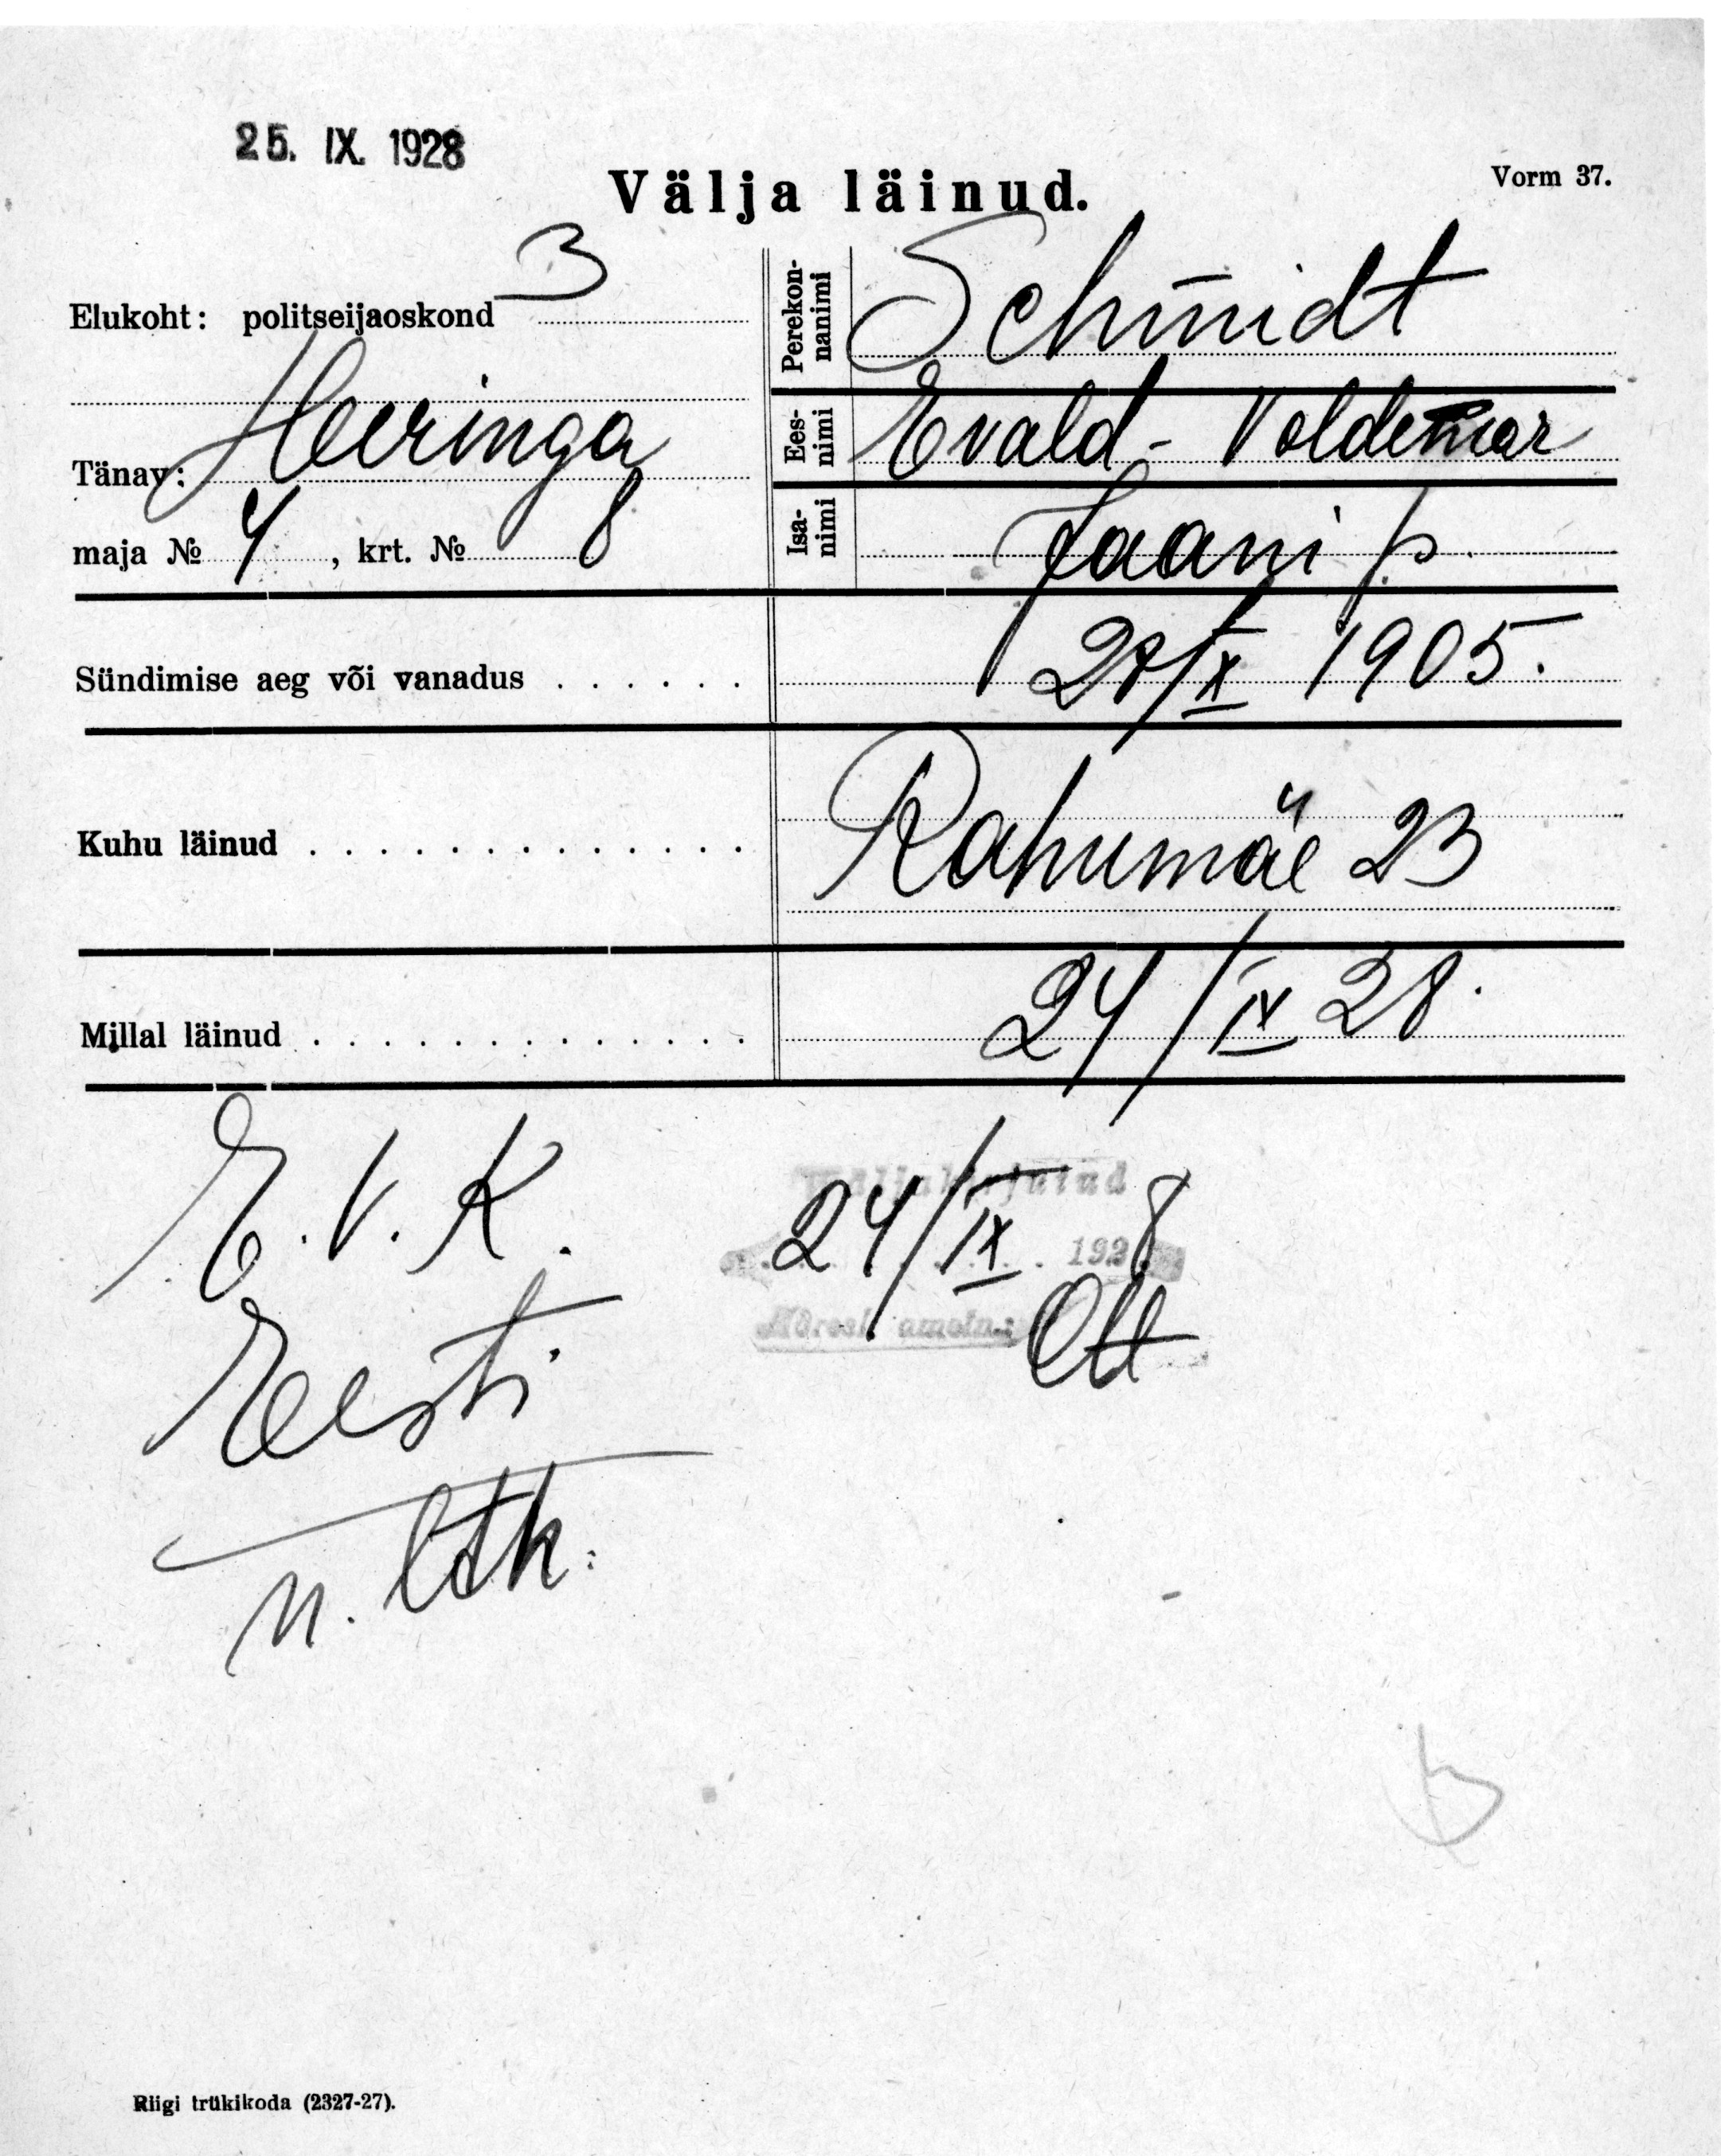 25. IX. 1928
Välja läinud.
Vorm 37.
Elukoht: politseijaoskond 3
Tänav: Heeringa
maja № 4, krt. № 8
Perekonnanimi Schmidt
Eesnimi Evald-Voldemar
Isanimi Jaani p.
Sündimise aeg või vanadus . . . . . . /X 1905.
Kuhu läinud . . . . . . . . . . . . . . Rahumäe 23
Millal läinud . . . . . . . . . . . . . . 24/IX 28.
E. V. K.
24/IX 1928
Eesti
Riigi trükikoda (2327-27).